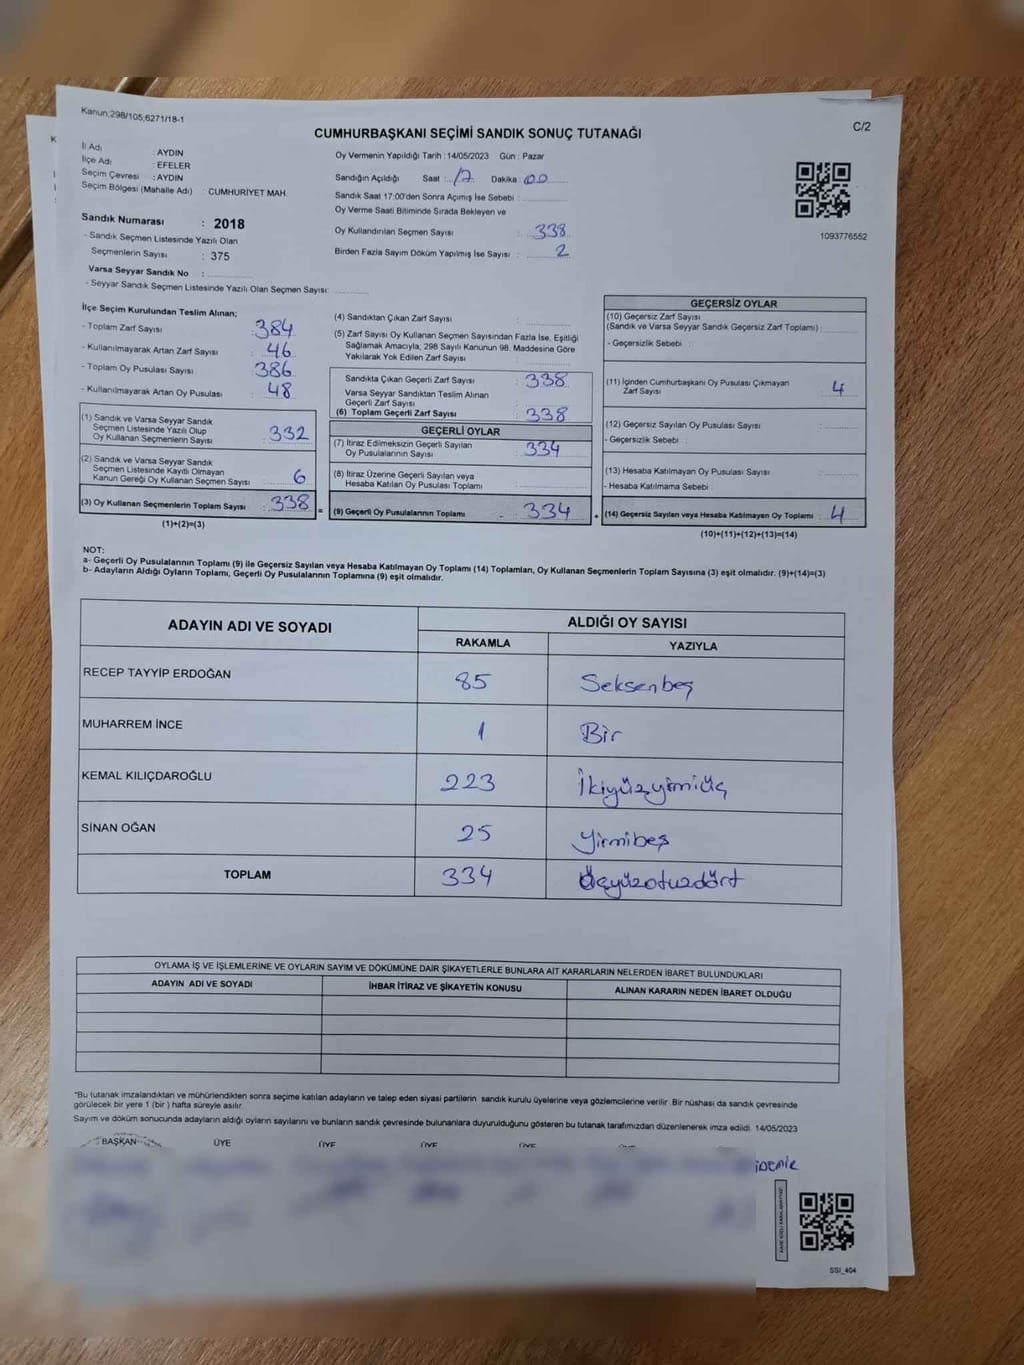 Kanun;298/105;6271/18-1
CUMHURBAŞKANI SEÇİMİ SANDIK SONUÇ TUTANAĞI
C/2
İl Adı : AYDIN
İlçe Adı : EFELER
Seçim Çevresi : AYDIN
Seçim Bölgesi (Mahalle Adı) : CUMHURİYET MAH.
Sandık Numarası : 2018
- Sandık Seçmen Listesinde Yazılı Olan
Seçmenlerin Sayısı : 375
Varsa Seyyar Sandık No :
- Seyyar Sandık Seçmen Listesinde Yazılı Olan Seçmen Sayısı:
Oy Vermenin Yapıldığı Tarih :14/05/2023 Gün : Pazar
Sandığın Açıldığı Saat : 17 Dakika : 00
Sandık Saat 17:00'den Sonra Açımış İse Sebebi :
Oy Verme Saati Bitiminde Sırada Bekleyen ve
Oy Kullandırılan Seçmen Sayısı : 338
Birden Fazla Sayım Döküm Yapılmış İse Sayısı : 2
1093776552
İlçe Seçim Kurulundan Teslim Alınan;
- Toplam Zarf Sayısı : 384
- Kullanılmayarak Artan Zarf Sayısı : 46
- Toplam Oy Pusulası Sayısı : 386
- Kullanılmayarak Artan Oy Pusulası : 48
(1) Sandık ve Varsa Seyyar Sandık
Seçmen Listesinde Yazılı Olup
Oy Kullanan Seçmenlerin Sayısı : 332
(2) Sandık ve Varsa Seyyar Sandık
Seçmen Listesinde Kayıtlı Olmayan
Kanun Gereği Oy Kullanan Seçmen Sayısı : 6
(3) Oy Kullanan Seçmenlerin Toplam Sayısı : 338
(1)+(2)=(3)
=
(4) Sandıktan Çıkan Zarf Sayısı :
(5) Zarf Sayısı Oy Kullanan Seçmen Sayısından Fazla İse, Eşitliği
Sağlamak Amacıyla; 298 Sayılı Kanunun 98. Maddesine Göre
Yakılarak Yok Edilen Zarf Sayısı :
Sandıkta Çıkan Geçerli Zarf Sayısı : 338
Varsa Seyyar Sandıktan Teslim Alınan
Geçerli Zarf Sayısı :
(6) Toplam Geçerli Zarf Sayısı : 338
GEÇERLİ OYLAR
(7) İtiraz Edilmeksizin Geçerli Sayılan
Oy Pusulalarının Sayısı : 334
(8) İtiraz Üzerine Geçerli Sayılan veya
Hesaba Katılan Oy Pusulası Toplamı :
(9) Geçerli Oy Pusulalarının Toplamı : 334
+
GEÇERSİZ OYLAR
(10) Geçersiz Zarf Sayısı
(Sandık ve Varsa Seyyar Sandık Geçersiz Zarf Toplamı) :
- Geçersizlik Sebebi :
(11) İçinden Cumhurbaşkanı Oy Pusulası Çıkmayan
Zarf Sayısı : 4
(12) Geçersiz Sayılan Oy Pusulası Sayısı :
- Geçersizlik Sebebi :
(13) Hesaba Katılmayan Oy Pusulası Sayısı :
- Hesaba Katılmama Sebebi :
(14) Geçersiz Sayılan veya Hesaba Katılmayan Oy Toplamı : 4
(10)+(11)+(12)+(13)=(14)
NOT:
a- Geçerli Oy Pusulalarının Toplamı (9) ile Geçersiz Sayılan veya Hesaba Katılmayan Oy Toplamı (14) Toplamları, Oy Kullanan Seçmenlerin Toplam Sayısına (3) eşit olmalıdır. (9)+(14)=(3)
b- Adayların Aldığı Oyların Toplamı, Geçerli Oy Pusulalarının Toplamına (9) eşit olmalıdır.
ADAYIN ADI VE SOYADI ALDIĞI OY SAYISI
RAKAMLA YAZIYLA
RECEP TAYYİP ERDOĞAN 85 Seksenbeş
MUHARREM İNCE 1 Bir
KEMAL KILIÇDAROĞLU 223 İkiyüzyirmiüç
SİNAN OĞAN 25 Yirmibeş
TOPLAM 334 Üçyüzotuzdört
OYLAMA İŞ VE İŞLEMLERİNE VE OYLARIN SAYIM VE DÖKÜMÜNE DAİR ŞİKAYETLERLE BUNLARA AİT KARARLARIN NELERDEN İBARET BULUNDUKLARI
ADAYIN ADI VE SOYADI İHBAR İTİRAZ VE ŞİKAYETİN KONUSU ALINAN KARARIN NEDEN İBARET OLDUĞU
*Bu tutanak imzalandıktan ve mühürlendikten sonra seçime katılan adayların ve talep eden siyasi partilerin sandık kurulu üyelerine veya gözlemcilerine verilir. Bir nüshası da sandık çevresinde
görülecek bir yere 1 (bir) hafta süreyle asılır.
Sayım ve döküm sonucunda adayların aldığı oyların sayılarını ve bunların sandık çevresinde bulunanlara duyurulduğunu gösteren bu tutanak tarafımızdan düzenlenerek imza edildi. 14/05/2023
BAŞKAN ÜYE ÜYE ÜYE ÜYE
SSI_404